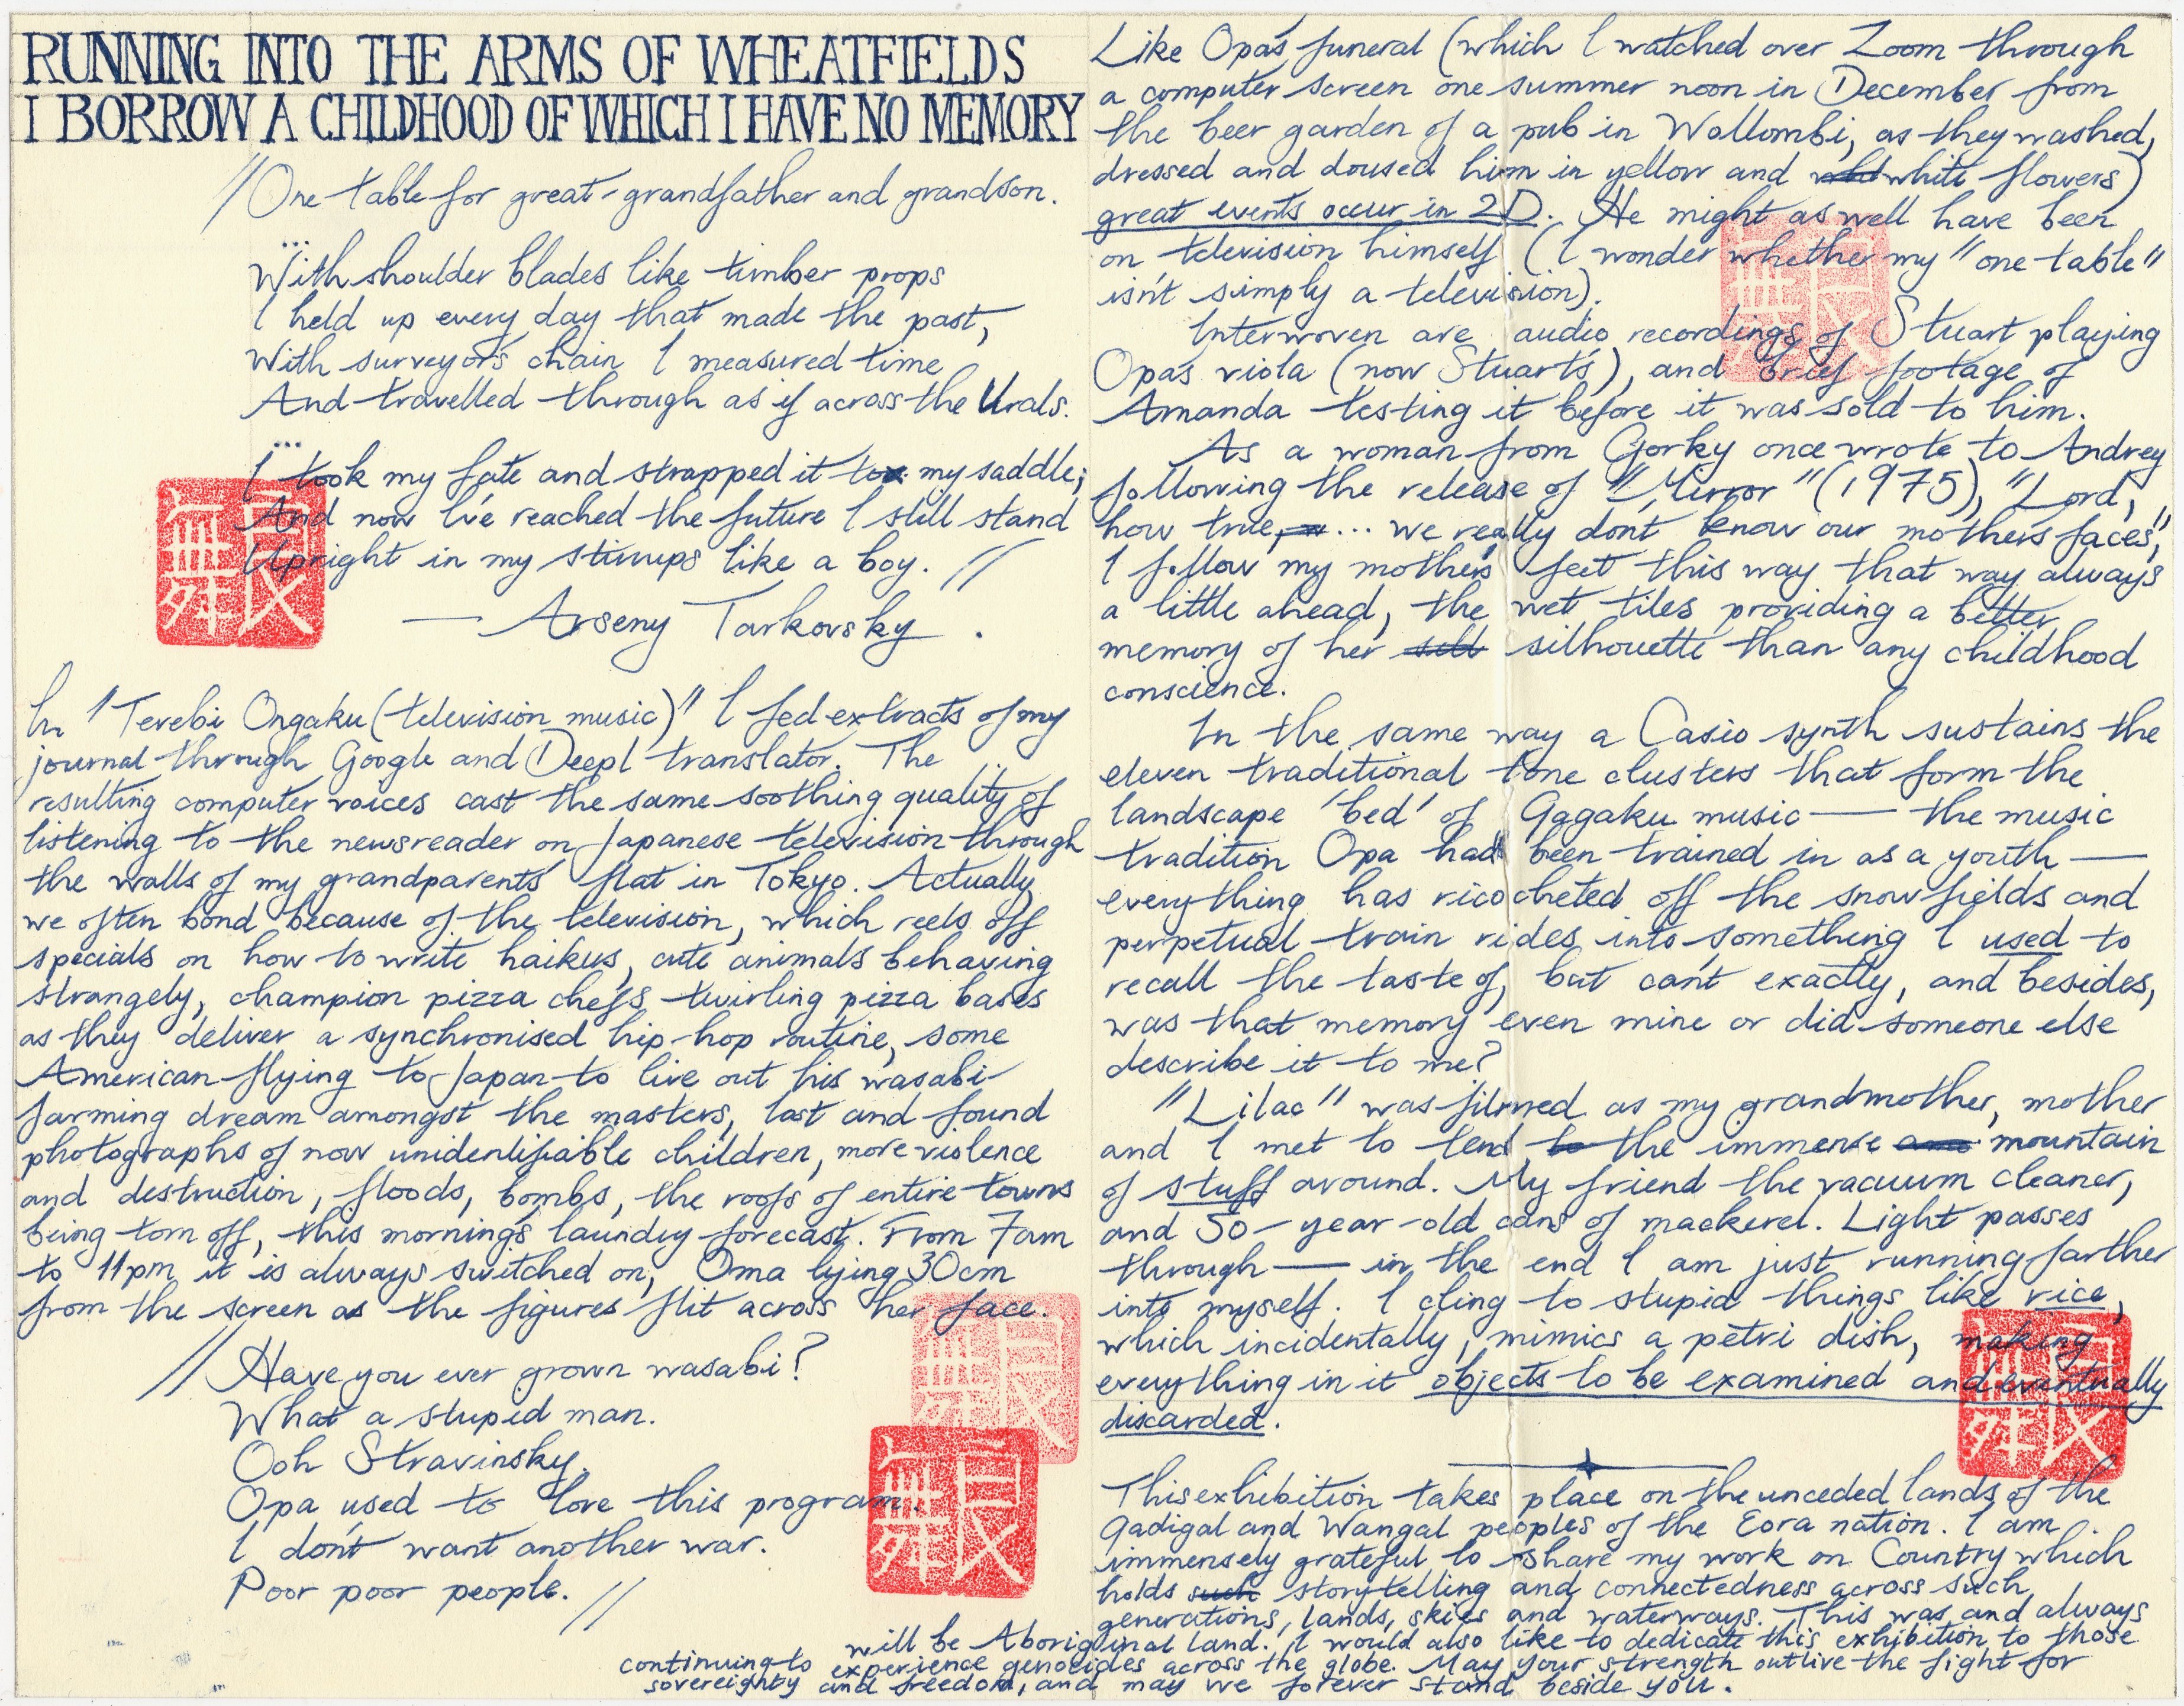 RUNNING INTO THE ARMS OF WHEATFIELDS
I BORROW A CHILDHOOD OF WHICH I HAVE NO MEMORY
//One table for great-grandfather and grandson.
...
With shoulder blades like timber props
I held up every day that made the past,
With surveyor's chain I measured time
And travelled through as if across the Urals.
...
I took my fate and strapped it to my saddle;
And now I've reached the future I still stand
Upright in my stirrups like a boy. //
— Arseny Tarkovsky.
In "Terebi Ongaku (television music)" I fed extracts of my
journal through Google and Deepl translator. The
resulting computer voices cast the same soothing quality of
listening to the newsreader on Japanese television through
the walls of my grandparents' flat in Tokyo. Actually
we often bond because of the television, which reels off
specials on how to write haikus, cute animals behaving
strangely, champion pizza chefs twirling pizza bases
as they deliver a synchronised hip-hop routine, some
American flying to Japan to live out his wasabi-
farming dream amongst the masters, lost and found
photographs of now unidentifiable children, more violence
and destruction, floods, bombs, the roofs of entire towns
being torn off, this morning's laundry forecast. From 7am
to 11pm it is always switched on, Oma lying 30cm
from the screen as the figures flit across her face.
// Have you ever grown wasabi?
What a stupid man.
Ooh Stravinsky.
Opa used to love this program.
I don't want another war.
Poor poor people. //
Like Opa's funeral (which I watched over Zoom through
a computer screen one summer noon in December from
the beer garden of a pub in Wollombi, as they washed,
dressed and doused him in yellow and white flowers)
great events occur in 2D. He might as well have been
on television himself (I wonder whether my "one table"
isn't simply a television).
Interwoven are audio recordings of Stuart playing
Opa's viola (now Stuart's), and brief footage of
Amanda testing it before it was sold to him.
As a woman from Gorky once wrote to Andrey
following the release of "Mirror" (1975), "Lord,
how true, ... we really don't know our mothers' faces",
I follow my mother's feet this way that way always
a little ahead, the wet tiles providing a better
memory of her silhouette than any childhood
conscience.
In the same way a Casio synth sustains the
eleven traditional tone clusters that form the
landscape 'bed' of Gagaku music — the music
tradition Opa had been trained in as a youth —
everything has ricocheted off the snowfields and
perpetual train rides into something I used to
recall the taste of, but can't exactly, and besides,
was that memory even mine or did someone else
describe it to me?
"Lilac" was filmed as my grandmother, mother
and I met to tend the immense mountain
of stuff around. My friend the vacuum cleaner,
and 50-year-old cans of mackerel. Light passes
through — in the end I am just running farther
into myself. I cling to stupid things like rice,
which incidentally, mimics a petri dish, making
everything in it objects to be examined and eventually
discarded.
This exhibition takes place on the unceded lands of the
Gadigal and Wangal peoples of the Eora nation. I am
immensely grateful to share my work on Country which
holds such storytelling and connectedness across such
generations, lands, skies and waterways. This was and always
will be Aboriginal land. I would also like to dedicate this exhibition to those
continuing to experience genocides across the globe. May your strength outlive the fight for
sovereignty and freedom, and may we forever stand beside you.